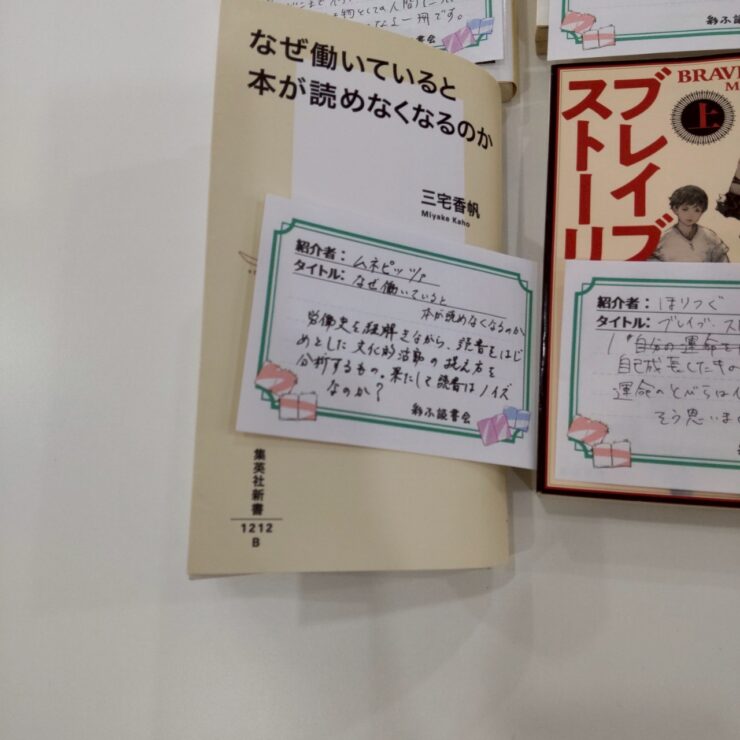 一冊です。
彩ふ読書会
なぜ働いていると
本が読めなくなるのか
三宅香帆
Miyake Kaho
紹介者:ムネピッツァ
タイトル:なぜ働いていると
本が読めなくなるのか
労働史を紐解きながら、読書をはじ
めとした文化的活動の捉え方を
分析するもの。果たして読書はノイズ
なのか?
彩ふ読書会
集英社新書
1212
B
BRAVE
上
ブレイブ
ストーリ
紹介者:ほりつぐ
タイトル:ブレイブ・スト
「自分の運命を
自己成長した中の
運命のとびらは
そう思いま